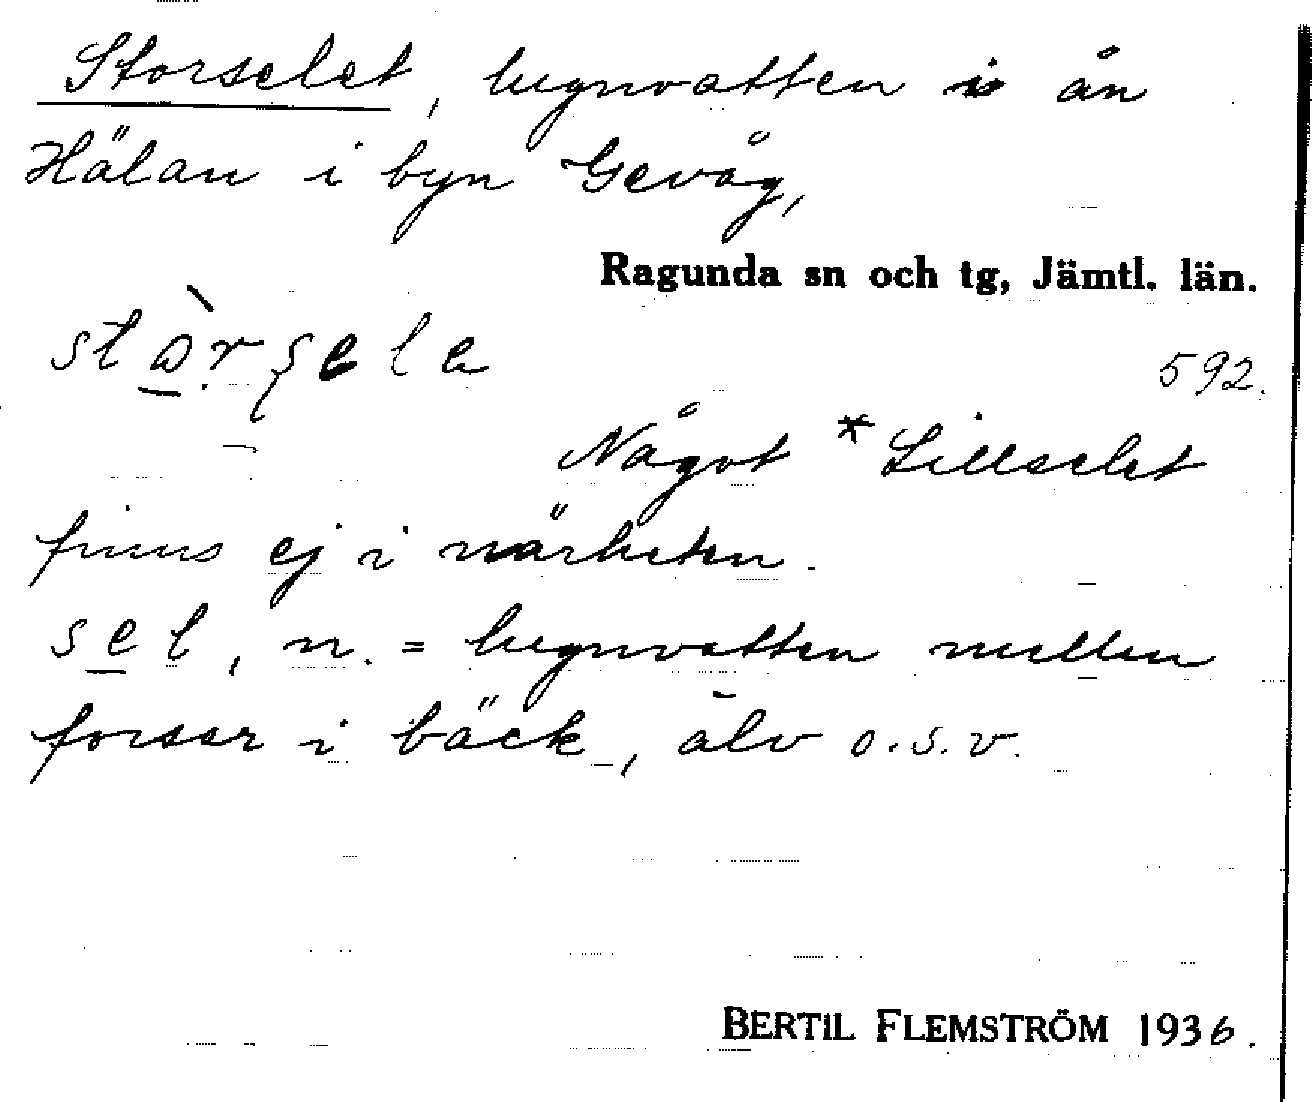 Storselet, lugnvatten i ån
Hälan i byn Gevåg,
Ragunda sn och tg, Jämtl. län.
stòrsele
592.
Något *Lillselet
finns ej i närheten.
sel, n. = lugnvatten mellan
forsar i bäck, älv o.s.v.
BERTIL FLEMSTRÖM 1936.